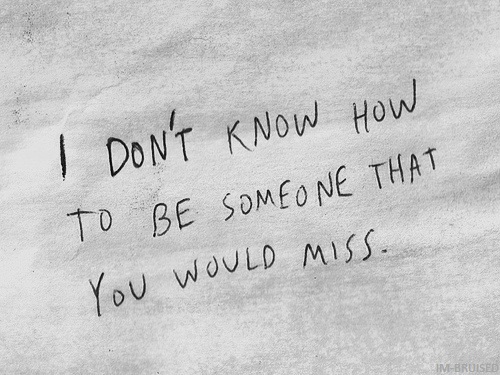 I DON'T KNOW HOW
TO BE SOMEONE THAT
YOU WOULD MISS.
IM-BRUISED